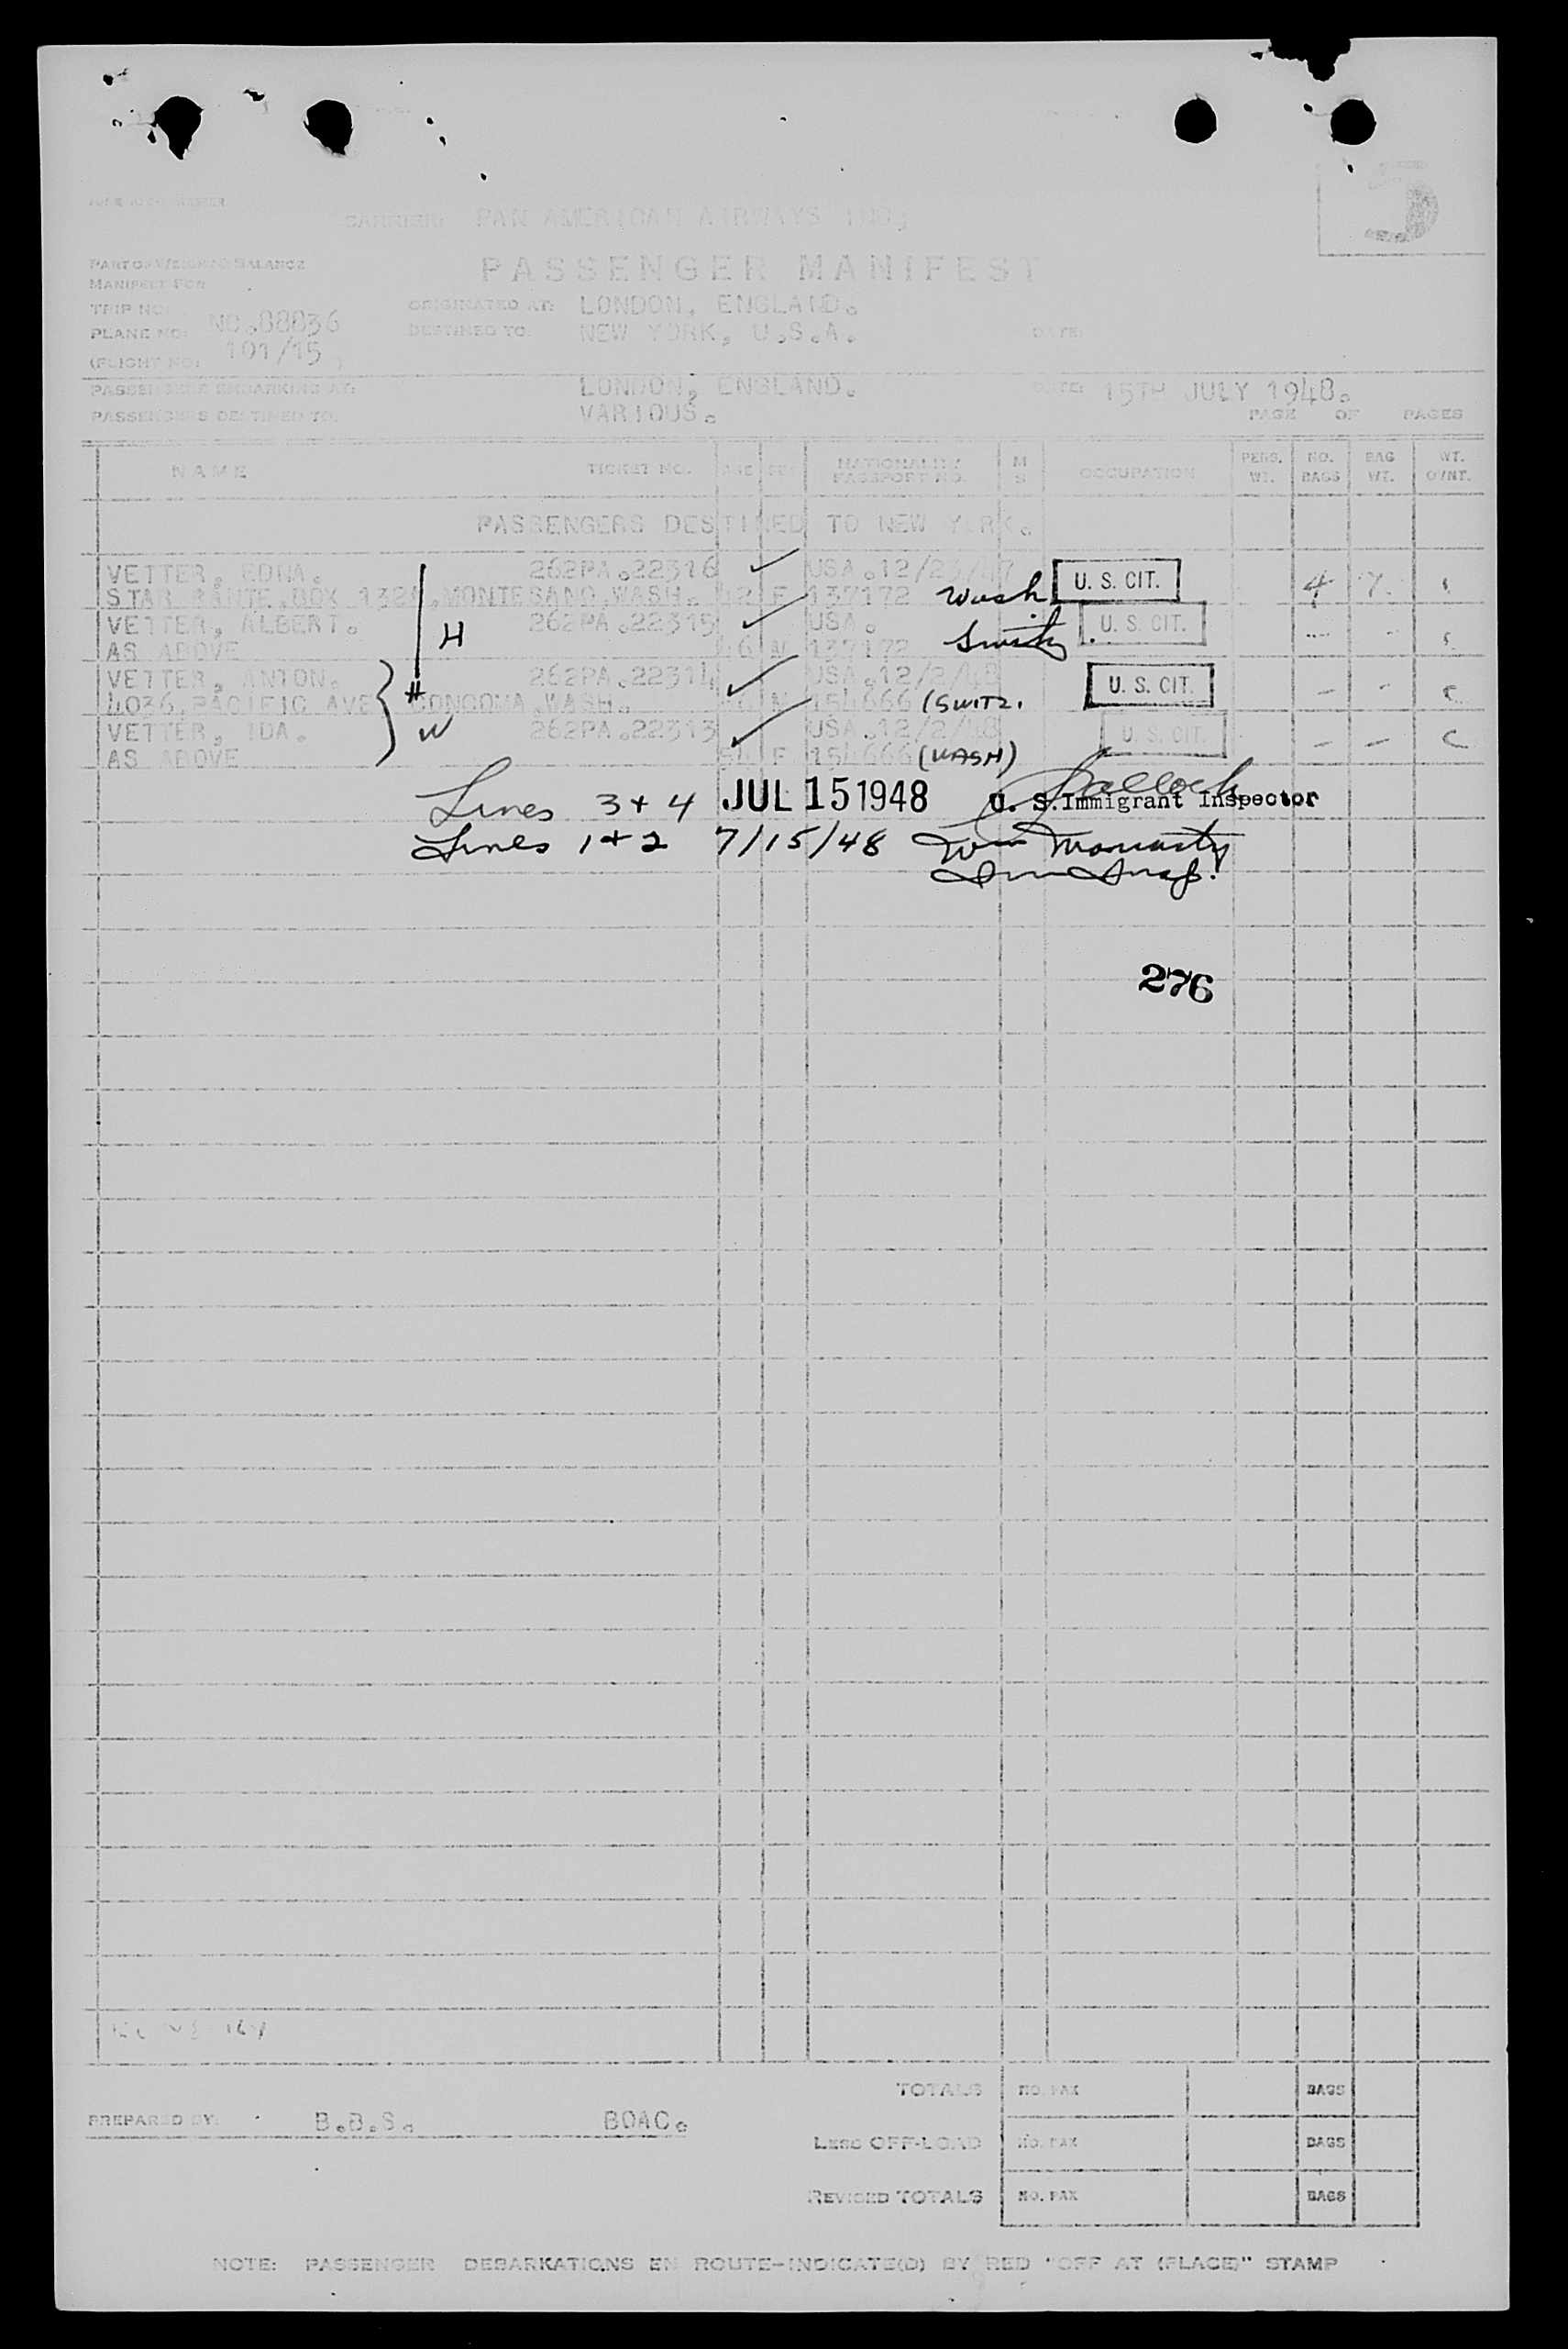 CARRIER: PAN AMERICAN AIRWAYS INC.
PART OF WEIGHT & BALANCE
PASSENGER MANIFEST
MANIFEST FOR
TRIP NO:
ORIGINATED AT: LONDON, ENGLAND.
PLANE NO: NC.88836
DESTINED TO: NEW YORK, U.S.A. DATE:
(FLIGHT NO: 101/15 )
PASSENGERS EMBARKING AT: LONDON, ENGLAND. DATE: 15TH JULY 1948.
PASSENGERS DESTINED TO: VARIOUS. PAGE OF PAGES
NAME TICKET NO. AGE SEX NATIONALITY PASSPORT NO. M S OCCUPATION PERS. WT. NO. BAGS BAG WT. WT. OVNT.
PASSENGERS DESTINED TO NEW YORK.
VETTER, EDNA. 262PA.22316 ✓ USA.12/23/47 U. S. CIT.
STAR ROUTE.BOX 132A.MONTESANO.WASH. F 137172 Wash 4 7.
VETTER, ALBERT. H 262PA.22315 ✓ USA. U. S. CIT.
AS ABOVE 46 M 137172
VETTER, ANTON. H 262PA.22314 ✓ USA.12/2/48 U. S. CIT.
4036.PACIFIC AVE WASH. M 154666 (SWITZ.
VETTER, IDA. W 262PA.22313 ✓ USA.12/2/48 U. S. CIT.
AS ABOVE F 154666 (WASH)
Lines 3 + 4 JUL 15 1948 U. S. Immigrant Inspector
Lines 1 + 2 7/15/48 Wm
Imm Insp.
276
TOTALS NO. PAX BAGS
PREPARED BY: B.B.S. BOAC.
LESS OFF-LOAD NO. PAX BAGS
REVISED TOTALS NO. PAX BAGS
NOTE: PASSENGER DEBARKATIONS EN ROUTE-INDICATE(D) BY RED "OFF AT (PLACE)" STAMP